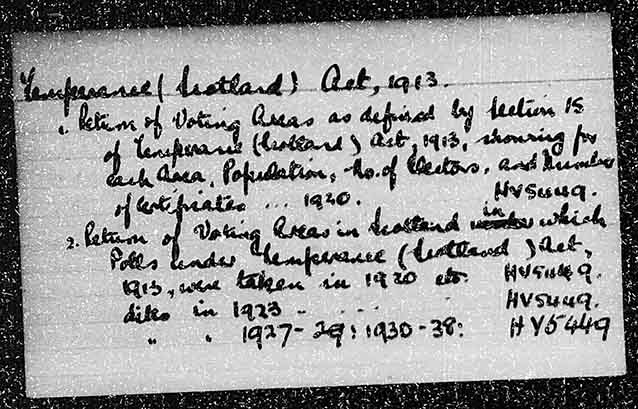 Temperance (Scotland) Act, 1913.
1. Return of Voting Areas as defined by Section 15
of Temperance (Scotland) Act, 1913, showing for
each Area, Population, No. of Electors, and Number
of Certificates ... 1920. HV5449.
2. Return of Voting Areas in Scotland in which
Polls under Temperance (Scotland) Act,
1913, were taken in 1920 etc. HV5449.
ditto in 1923 . . . . . HV5449.
" . 1927-29: 1930-38: HV5449